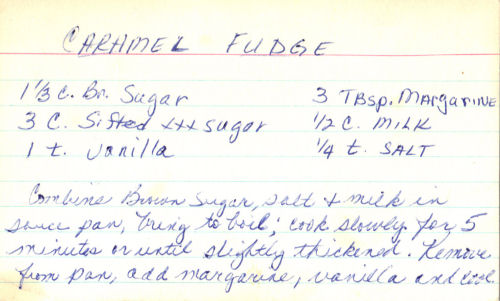 CARAMEL FUDGE
1 1/3 c. Br. Sugar
3 TBsp. MARGARINE
3 C. Sifted xxx sugar
1/2 C. MILK
1 t. vanilla
1/4 t. SALT
Combine Brown Sugar, salt + milk in
sauce pan, bring to boil; cook slowly for 5
minutes or until slightly thickened. Remove
from pan, add margarine, vanilla and cool